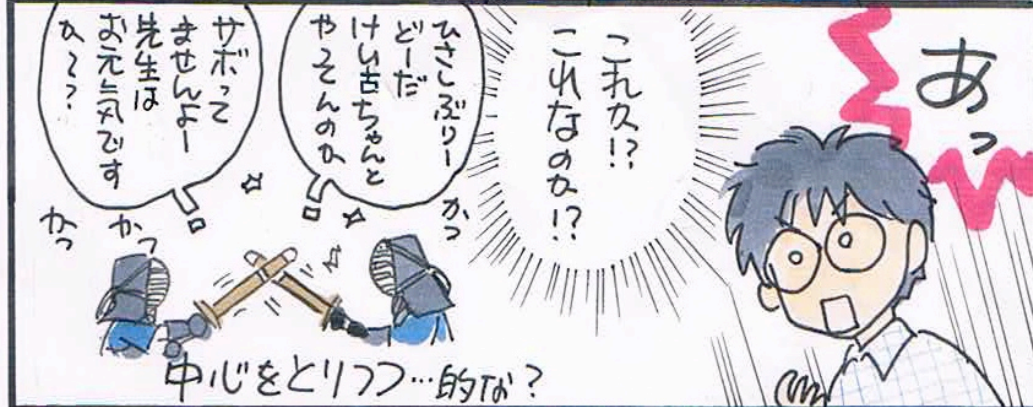 あっ
これか!?
これなのか!?
ひさしぶりー
どーだ
けい古ちゃんと
やってんのか
サボって
ませんよー
先生は
お元気です
か??
かっ
かっ
かっ
中心をとりつつ…的な?